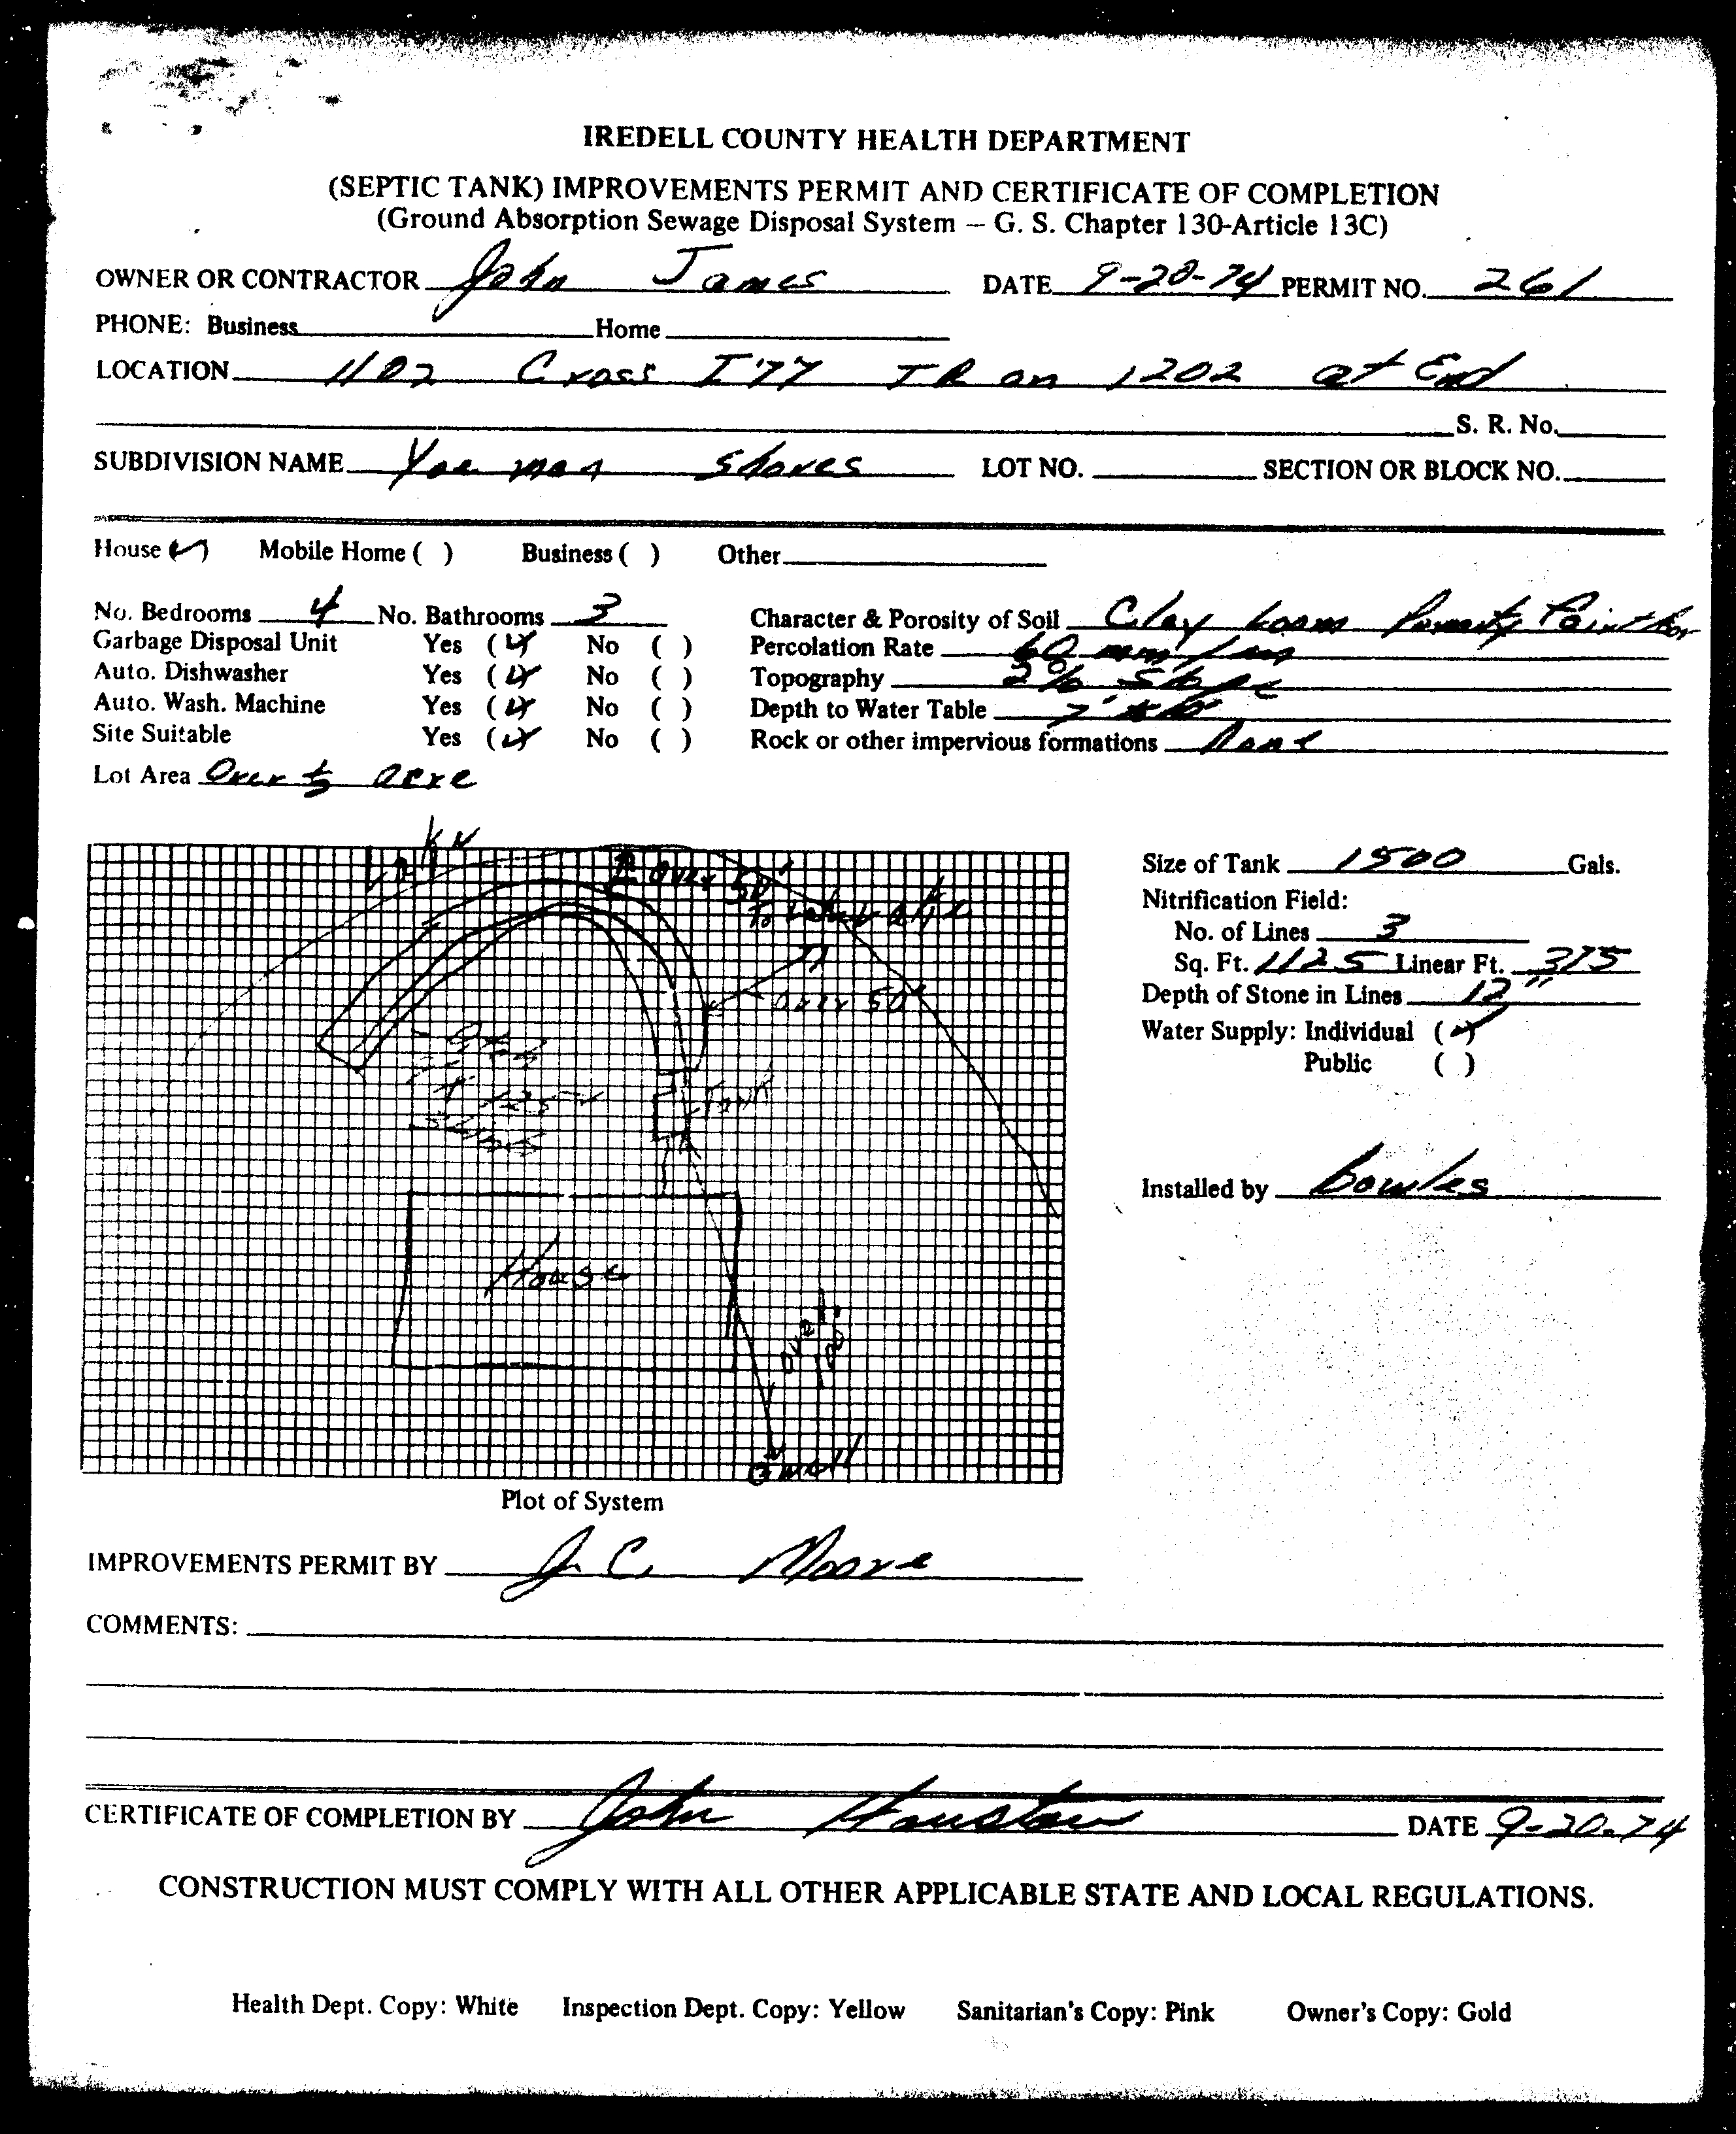 IREDELL COUNTY HEALTH DEPARTMENT
(SEPTIC TANK) IMPROVEMENTS PERMIT AND CERTIFICATE OF COMPLETION
(Ground Absorption Sewage Disposal System – G. S. Chapter 130-Article 13C)
OWNER OR CONTRACTOR John James DATE 9-20-74 PERMIT NO. 261
PHONE: Business Home
LOCATION 1102 Cross I'77 TR on 1202 at End
S. R. No.
SUBDIVISION NAME Yoeman Shores LOT NO. SECTION OR BLOCK NO.
House (✓) Mobile Home ( ) Business ( ) Other
No. Bedrooms 4 No. Bathrooms 3 Character & Porosity of Soil Clay Loam
Garbage Disposal Unit Yes (✓) No ( ) Percolation Rate 60
Auto. Dishwasher Yes (✓) No ( ) Topography 2% Slope
Auto. Wash. Machine Yes (✓) No ( ) Depth to Water Table
Site Suitable Yes (✓) No ( ) Rock or other impervious formations None
Lot Area Over ½ acre
N
over 50'
To
over 50'
Tank
House
over
well
Size of Tank 1500 Gals.
Nitrification Field:
No. of Lines 3
Sq. Ft. 1125 Linear Ft. 375
Depth of Stone in Lines 12"
Water Supply: Individual (✓)
Public ( )
Installed by Bowles
Plot of System
IMPROVEMENTS PERMIT BY J. C. Moore
COMMENTS:
CERTIFICATE OF COMPLETION BY John Houston DATE 9-20-74
CONSTRUCTION MUST COMPLY WITH ALL OTHER APPLICABLE STATE AND LOCAL REGULATIONS.
Health Dept. Copy: White Inspection Dept. Copy: Yellow Sanitarian's Copy: Pink Owner's Copy: Gold